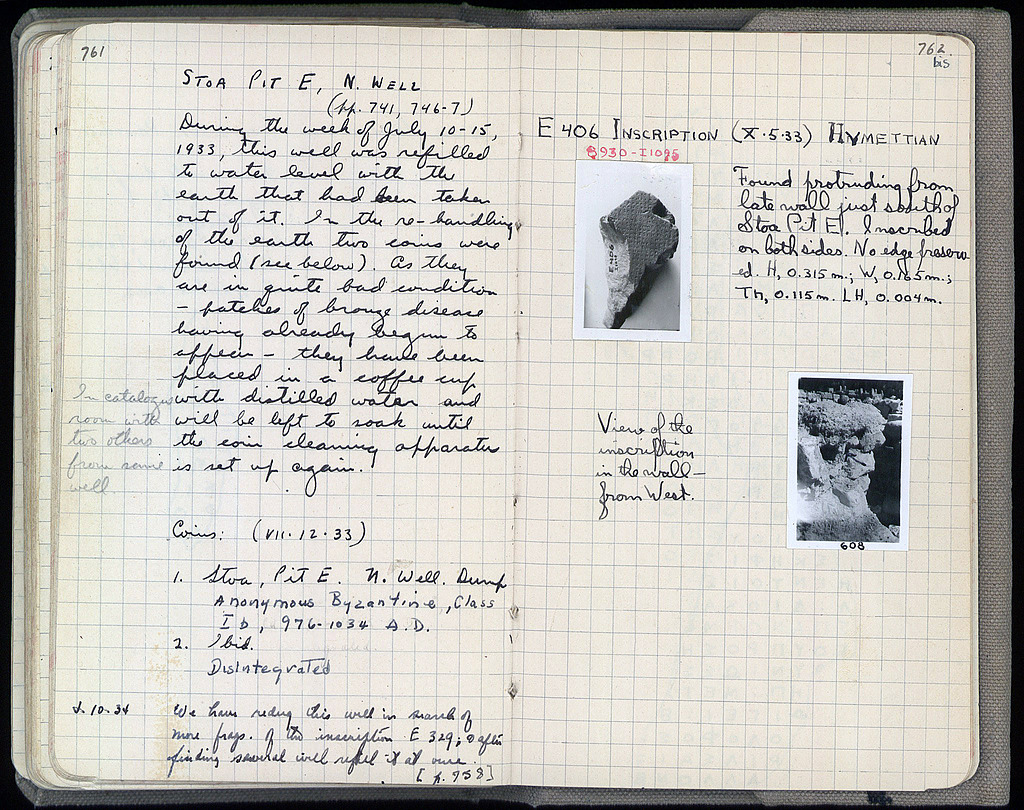 761
STOA PIT E, N. WELL
(pp. 741, 746-7)
During the week of July 10-15,
1933, this well was refilled
to water level with the
earth that had been taken
out of it. In the re-handling
of the earth two coins were
found (see below). As they
are in quite bad condition
- patches of bronze disease
having already begun to
appear - they have been
placed in a coffee cup
with distilled water and
will be left to soak until
the coin cleaning apparatus
is set up again.
In catalogue
room with
two others
from same
well.
Coins: (VII·12·33)
1. Stoa, Pit E. N. Well. Dump
Anonymous Byzantine, Class
I b, 976-1034 A.D.
2. Ibid.
Disintegrated
10·34
We have redug this well in search of
more frags. of the inscription E 329; & after
finding several will refill it at once.
[p. 958]
762
bis
E 406 INSCRIPTION (X·5·33) HYMETTIAN
I 1095
E 406
Found protruding from
late wall just south of
Stoa Pit E. Inscribed
on both sides. No edge preserv-
ed. H, 0.315 m.; W, 0.165 m.;
TH, 0.115 m. LH, 0.004 m.
View of the
inscription
in the wall -
from West.
608